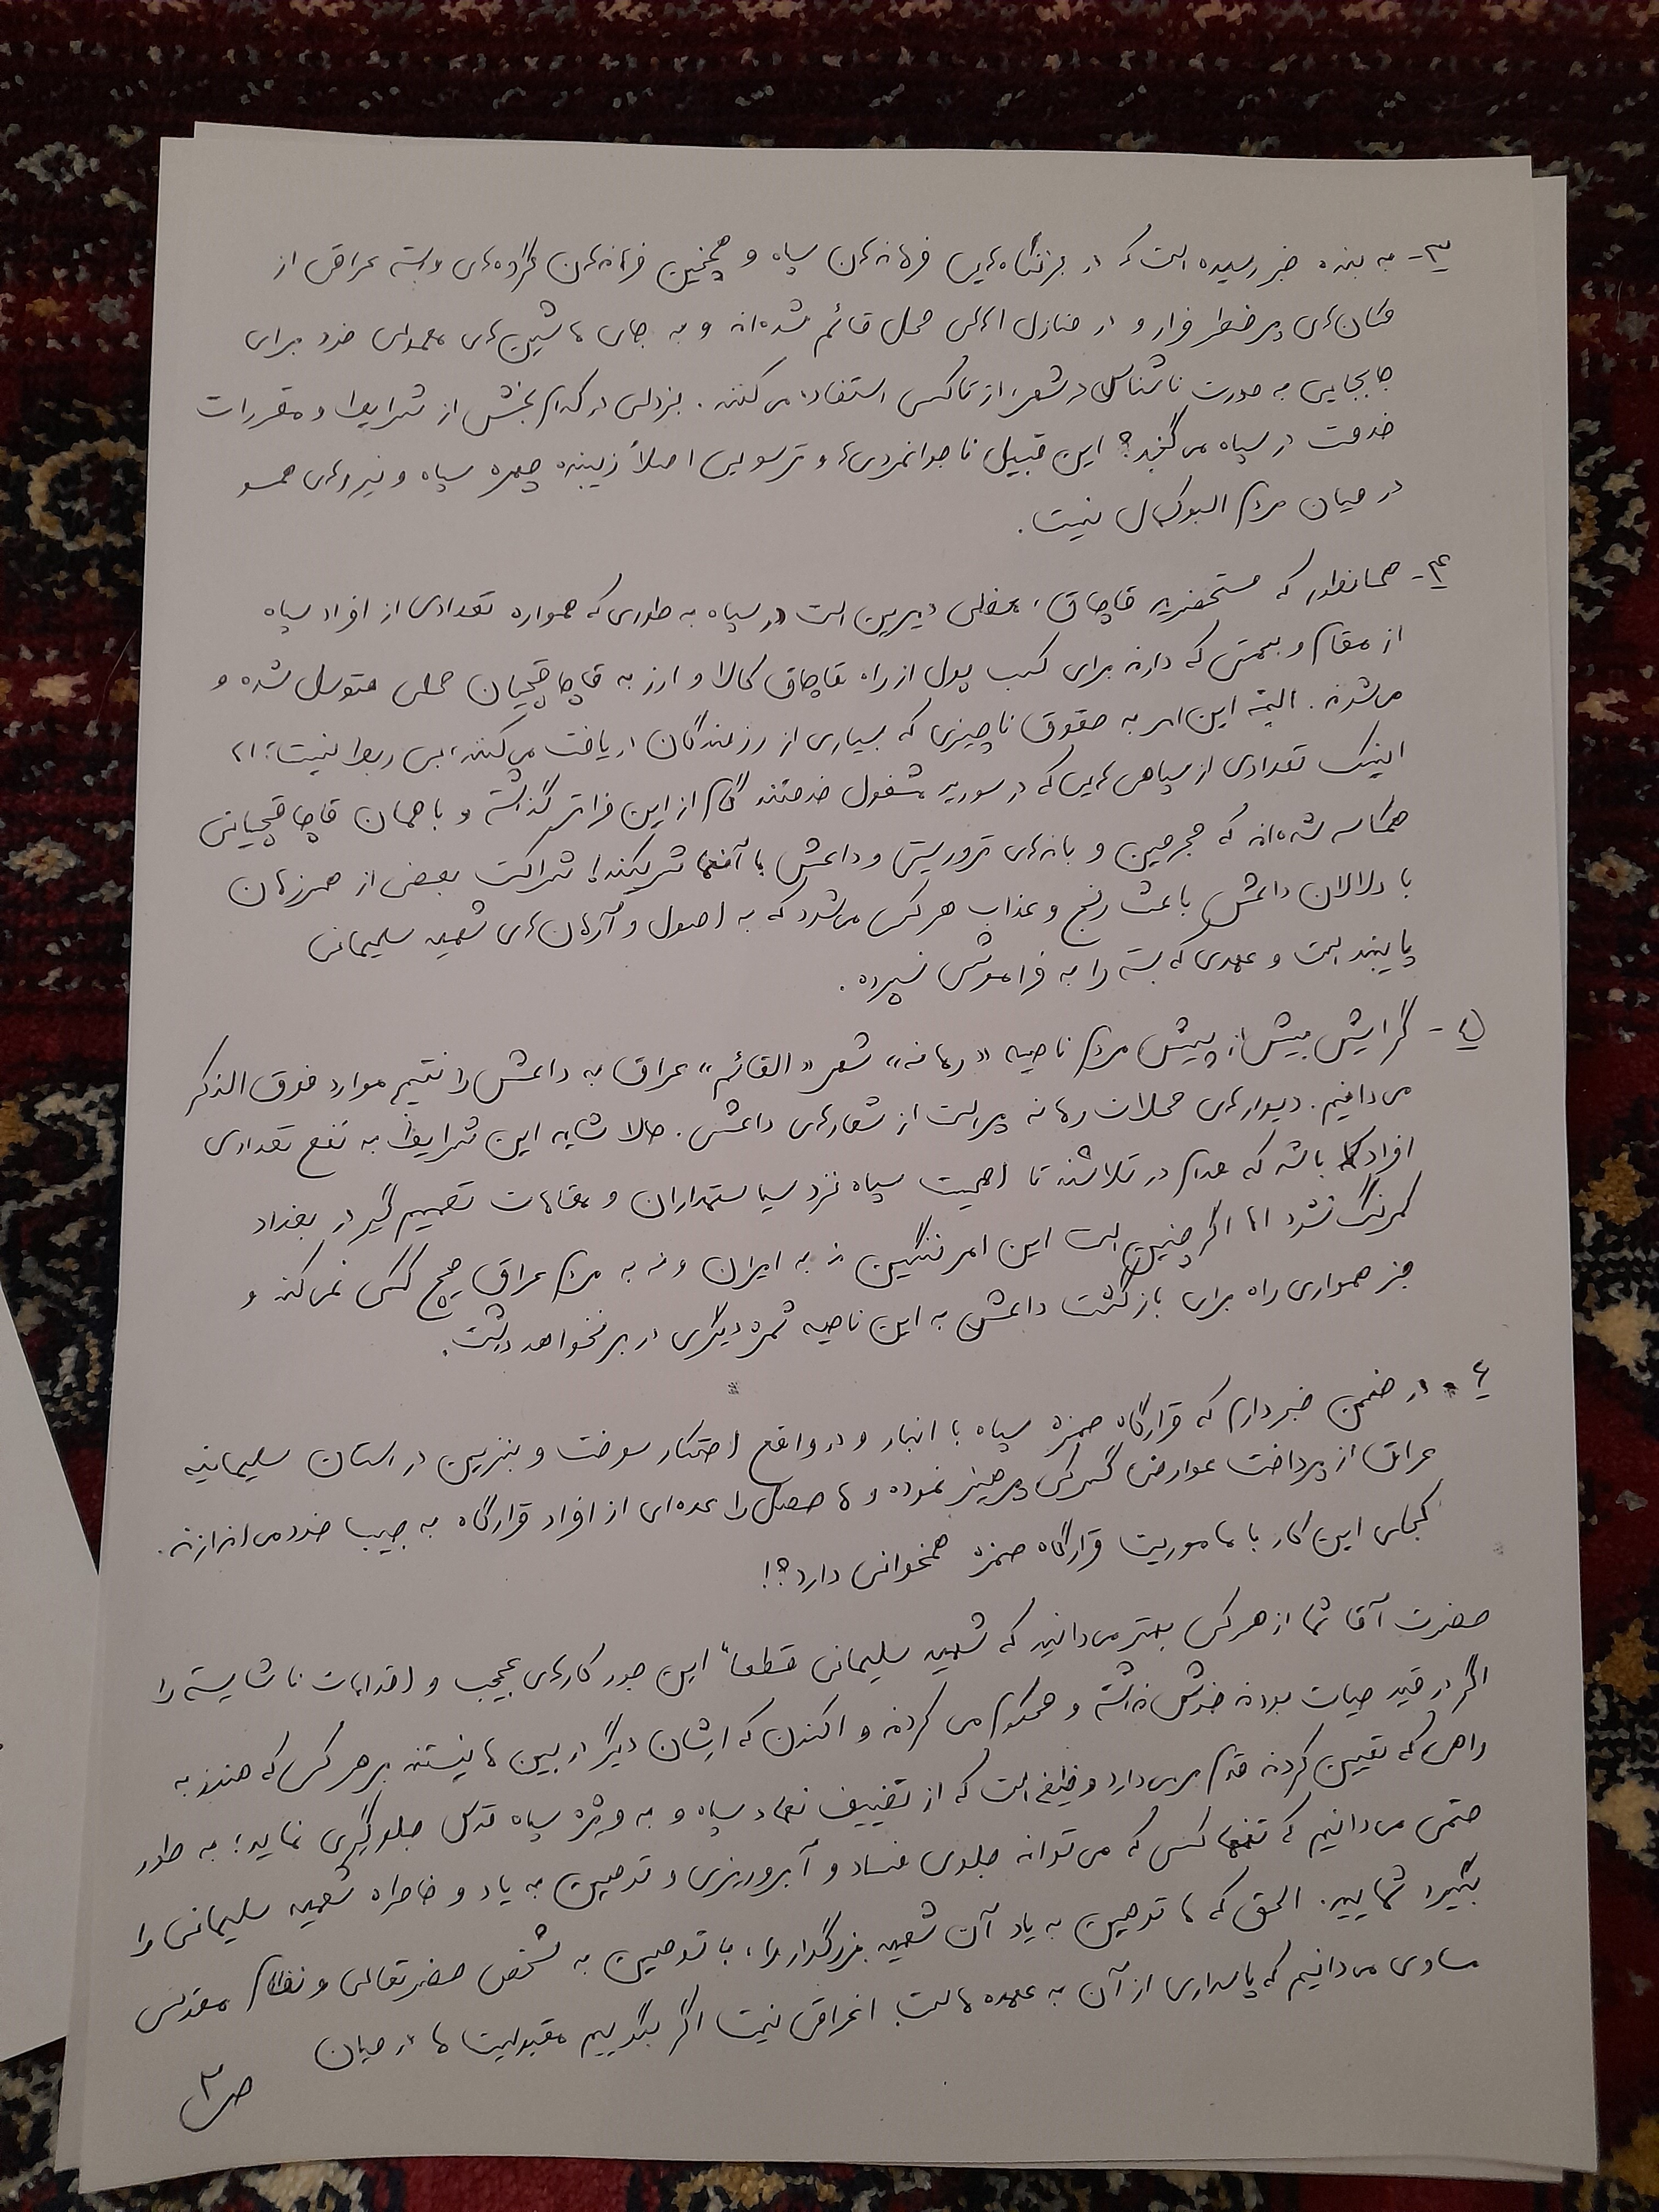 ۳- به بنده خبر رسیده است که در بزنگاه‌هایی فرماندهان سپاه و همچنین فرماندهان گروه‌های وابسته عراقی از
مکان‌های پر خطر فرار و در منازل اهالی محل قائم شده‌اند و به جای ماشین‌های معمولی خود برای
جابجایی به صورت ناشناس در شهر، از تاکسی استفاده می کنند. بزدلی در کدام بخش از شرایط و مقررات
خدمت در سپاه می گنجد؟ این قبیل ناجوانمردی‌ها و ترسویی اصلاً زیبنده چهره سپاه و نیروهای همسو
در میان مردم البوکمال نیست.
۴- همانطور که مستحضرید قاچاق، معضلی دیرین است در سپاه به طوری که همواره تعدادی از افراد سپاه
از مقام و سمتی که دارند برای کسب پول از راه قاچاق کالا و ارز به قاچاقچیان محلی متوسل شده و
می‌شوند. البته این امر به حقوق ناچیزی که بسیاری از رزمندگان دریافت می‌کنند، بی ربط نیست؛ اما
اینک تعدادی از سپاهی‌هایی که در سوریه مشغول خدمتند گام از این فراتر گذاشته و با همان قاچاقچیانی
همکاسه شده‌اند که مجرمین و باندهای تروریستی و داعش با آنها شریکند! شراکت بعضی از همرزمان
با دلالان داعش باعث رنج و عذاب هر کس می‌شود که به اصول و آرمان‌های شهید سلیمانی
پایبند است و عهدی که بسته را به فراموشی نسپرده.
۵- گرایش بیش از پیش مردم ناحیه «رمانه» شهر «القائم» عراق به داعش را نتیجه موارد فوق الذکر
می‌دانیم. دیوارهای محلات رمانه پر است از شعارهای داعش. حالا شاید این شرایط به نفع تعدادی
افراد باشد که مدام در تلاشند تا اهمیت سپاه نزد سیاستمداران و مقامات تصمیم گیر در بغداد
کمرنگ نشود اما اگر چنین است این امر ننگین نه به ایران و نه به مردم عراق هیچ کمکی نمی‌کند و
جز همواری راه برای بازگشت داعش به این ناحیه ثمره دیگری در بر نخواهد داشت.
۶- در ضمن خبر دارم که قرارگاه حمزه سپاه با انبار و در واقع احتکار سوخت و بنزین در استان سلیمانیه
عراق از پرداخت عوارض گمرکی پرهیز نموده و ماحصل را عده‌ای از افراد قرارگاه به جیب خود می اندازند.
کجای این کار با ماموریت قرارگاه حمزه همخوانی دارد؟!
حضرت آقا شما از هر کس بهتر می‌دانید که شهید سلیمانی قطعاً این جور کارهای عجیب و اقدامات ناشایسته را
اگر در قید حیات بودند خوش نداشته و محکوم می کردند و اکنون که ایشان دیگر در بین ما نیستند بر هر کس که هنوز به
راهی که تعیین کردند قدم برمی‌دارد وظیفه است که از تضعیف نهاد سپاه و به ویژه سپاه قدس جلوگیری نماید؛ به طور
حتمی می‌دانیم که تنها کسی که می توانه جلوی فساد و آبروریزی و توهین به یاد و خاطره شهید سلیمانی را
بگیرد شمایید. الحق که ما توهین به یاد آن شهید بزرگوار را، با توهین به شخص حضرتعالی و نظام مقدس
مساوی می‌دانیم که پاسداری از آن به عهده ماست. اغراق نیست اگر بگوییم مقبولیت ما در میان
ص۲